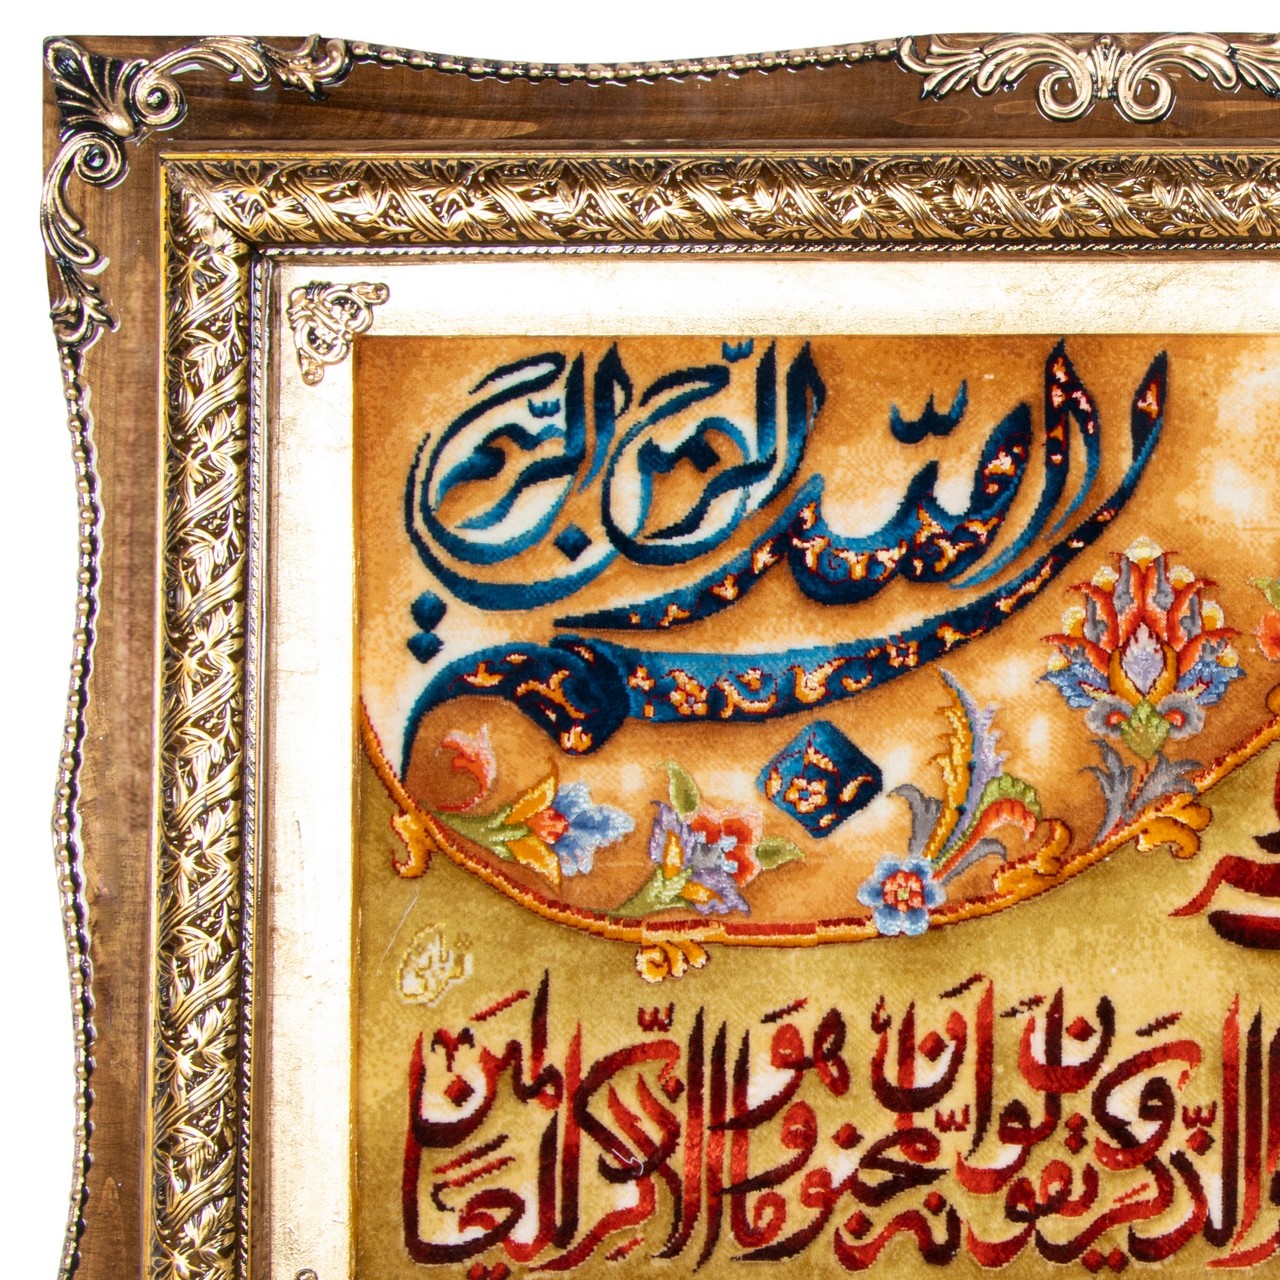 بسم الله الرحمن الرحیم
الذکر و یقولون انه لمجنون و ما هو الا ذکر للعالمین